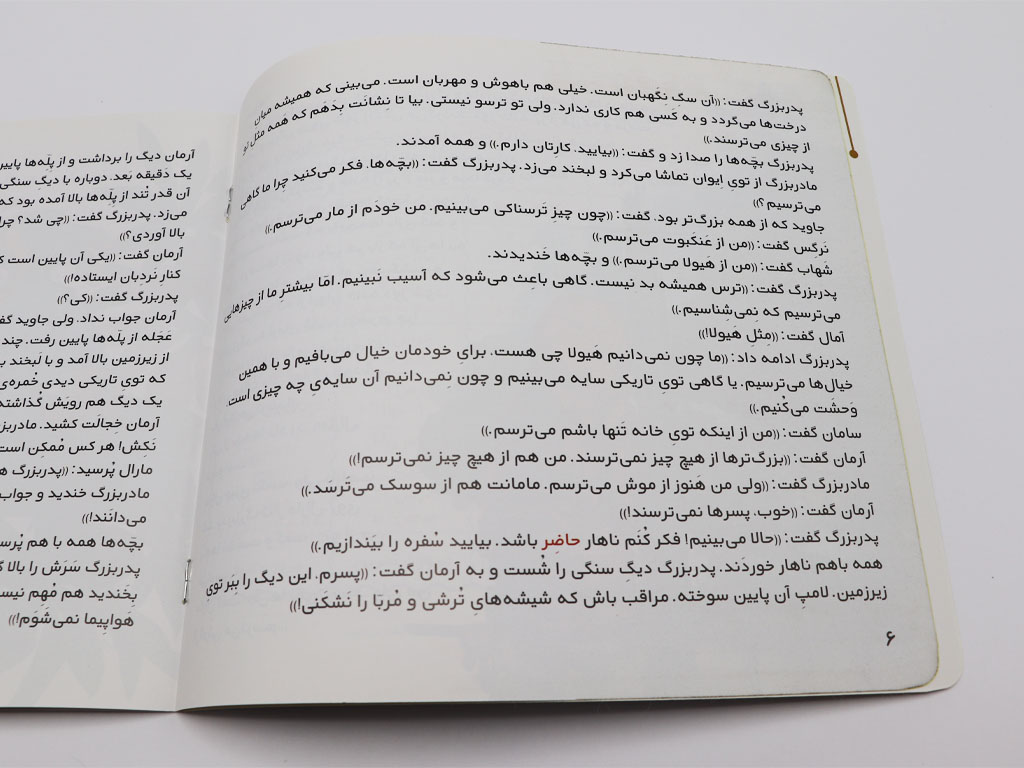 پدربزرگ گفت: ((آن سگِ نِگَهبان است. خیلی هم باهوش و مهربان است. می‌بینی که همیشه میان
درخت‌ها می‌گردد و به کَسی هم کاری ندارد. ولی تو ترسو نیستی. بیا تا نِشانَت بِدَهَم که هَمه مثل تو
از چیزی می‌ترسند.))
پدربزرگ بچّه‌ها را صدا زد و گفت: ((بیایید. کارِتان دارم.)) و همه آمدند.
مادربزرگ از تویِ اِیوان تماشا می‌کرد و لبخند می‌زد. پدربزرگ گفت: ((بچّه‌ها. فکر می‌کنید چِرا ما گاهی
می‌ترسیم؟))
جاوید که از همه بزرگ‌تر بود. گفت: ((چون چیزِ تَرسناکی می‌بینیم. من خودَم از مار می‌ترسم.))
نَرگِس گفت: ((من از عَنکَبوت می‌ترسم.))
شَهاب گفت: ((من از هَیولا می‌ترسم.)) و بچّه‌ها خَندیدند.
پدربزرگ گفت: ((ترس همیشه بد نیست. گاهی باعِث می‌شود که آسیب نَبینیم. امّا بیشترِ ما از چیزهایی
می‌ترسیم که نمی‌شِناسیم.))
آمال گفت: ((مِثلِ هَیولا!))
پدربزرگ ادامه داد: ((ما چون نمی‌دانیم هَیولا چی هست. برایِ خودمان خیال می‌بافیم و با همین
خیال‌ها می‌ترسیم. یا گاهی تویِ تاریکی سایه می‌بینیم و چون نِمی‌دانیم آن سایه‌یِ چه چیزی است
وَحشَت می‌کُنیم.))
سامان گفت: ((من از اینکه تویِ خانه تَنها باشم می‌ترسم.))
آرمان گفت: ((بزرگ‌ترها از هیچ چیز نمی‌ترسند. من هم از هیچ چیز نمی‌ترسم!))
مادربزرگ گفت: ((ولی من هَنوز از موش می‌ترسم. مامانت هم از سوسک می‌تَرسَد.))
آرمان گفت: ((خوب، پسرها نمی‌ترسند!))
پدربزرگ گفت: ((حالا می‌بینیم! فکر کُنَم ناهار حاضِر باشد. بیایید سُفره را بیَندازیم.))
همه باهم ناهار خوردَند. پدربزرگ دیگِ سنگی را شُست و به آرمان گفت: ((پسرم. این دیگ را بِبَر تویِ
زیرزمین. لامپِ آن پایین سوخته. مراقب باش که شیشه‌هایِ تُرشی و مُربّا را نَشکَنی!))
۶
آرمان دیگ را برداشت و از پِلّه‌ها پایین
یک دَقیقه بَعد. دوباره با دیگِ سنگی
آن قدر تُند از پِلّه‌ها بالا آمده بود که
می‌زد. پدربزرگ گفت: ((چی شد؟ چرا
بالا آوردی؟))
آرمان گفت: ((یکی آن پایین است که
کنارِ نَردِبان ایستاده!))
پدربزرگ گفت: ((کی؟))
آرمان جواب نداد. ولی جاوید
عَجَله از پِلّه‌ها پایین رفت. چند
از زیرزمین بالا آمد و با لَبخند
که تویِ تاریکی دیدی خُمره‌ی
یک دیگ هم رویَش گُذاشته
آرمان خِجالَت کشید.
نَکِش! هر کس مُمکِن است
مارال پُرسید: ((پدربزرگ
مادربزرگ خندید و جواب
می‌دانَند!))
بچّه‌ها همه با هم
پدربزرگ سَرَش را بالا
بِخَندید هم مُهِم نیست
هواپِیما نمی‌شَوَم!))